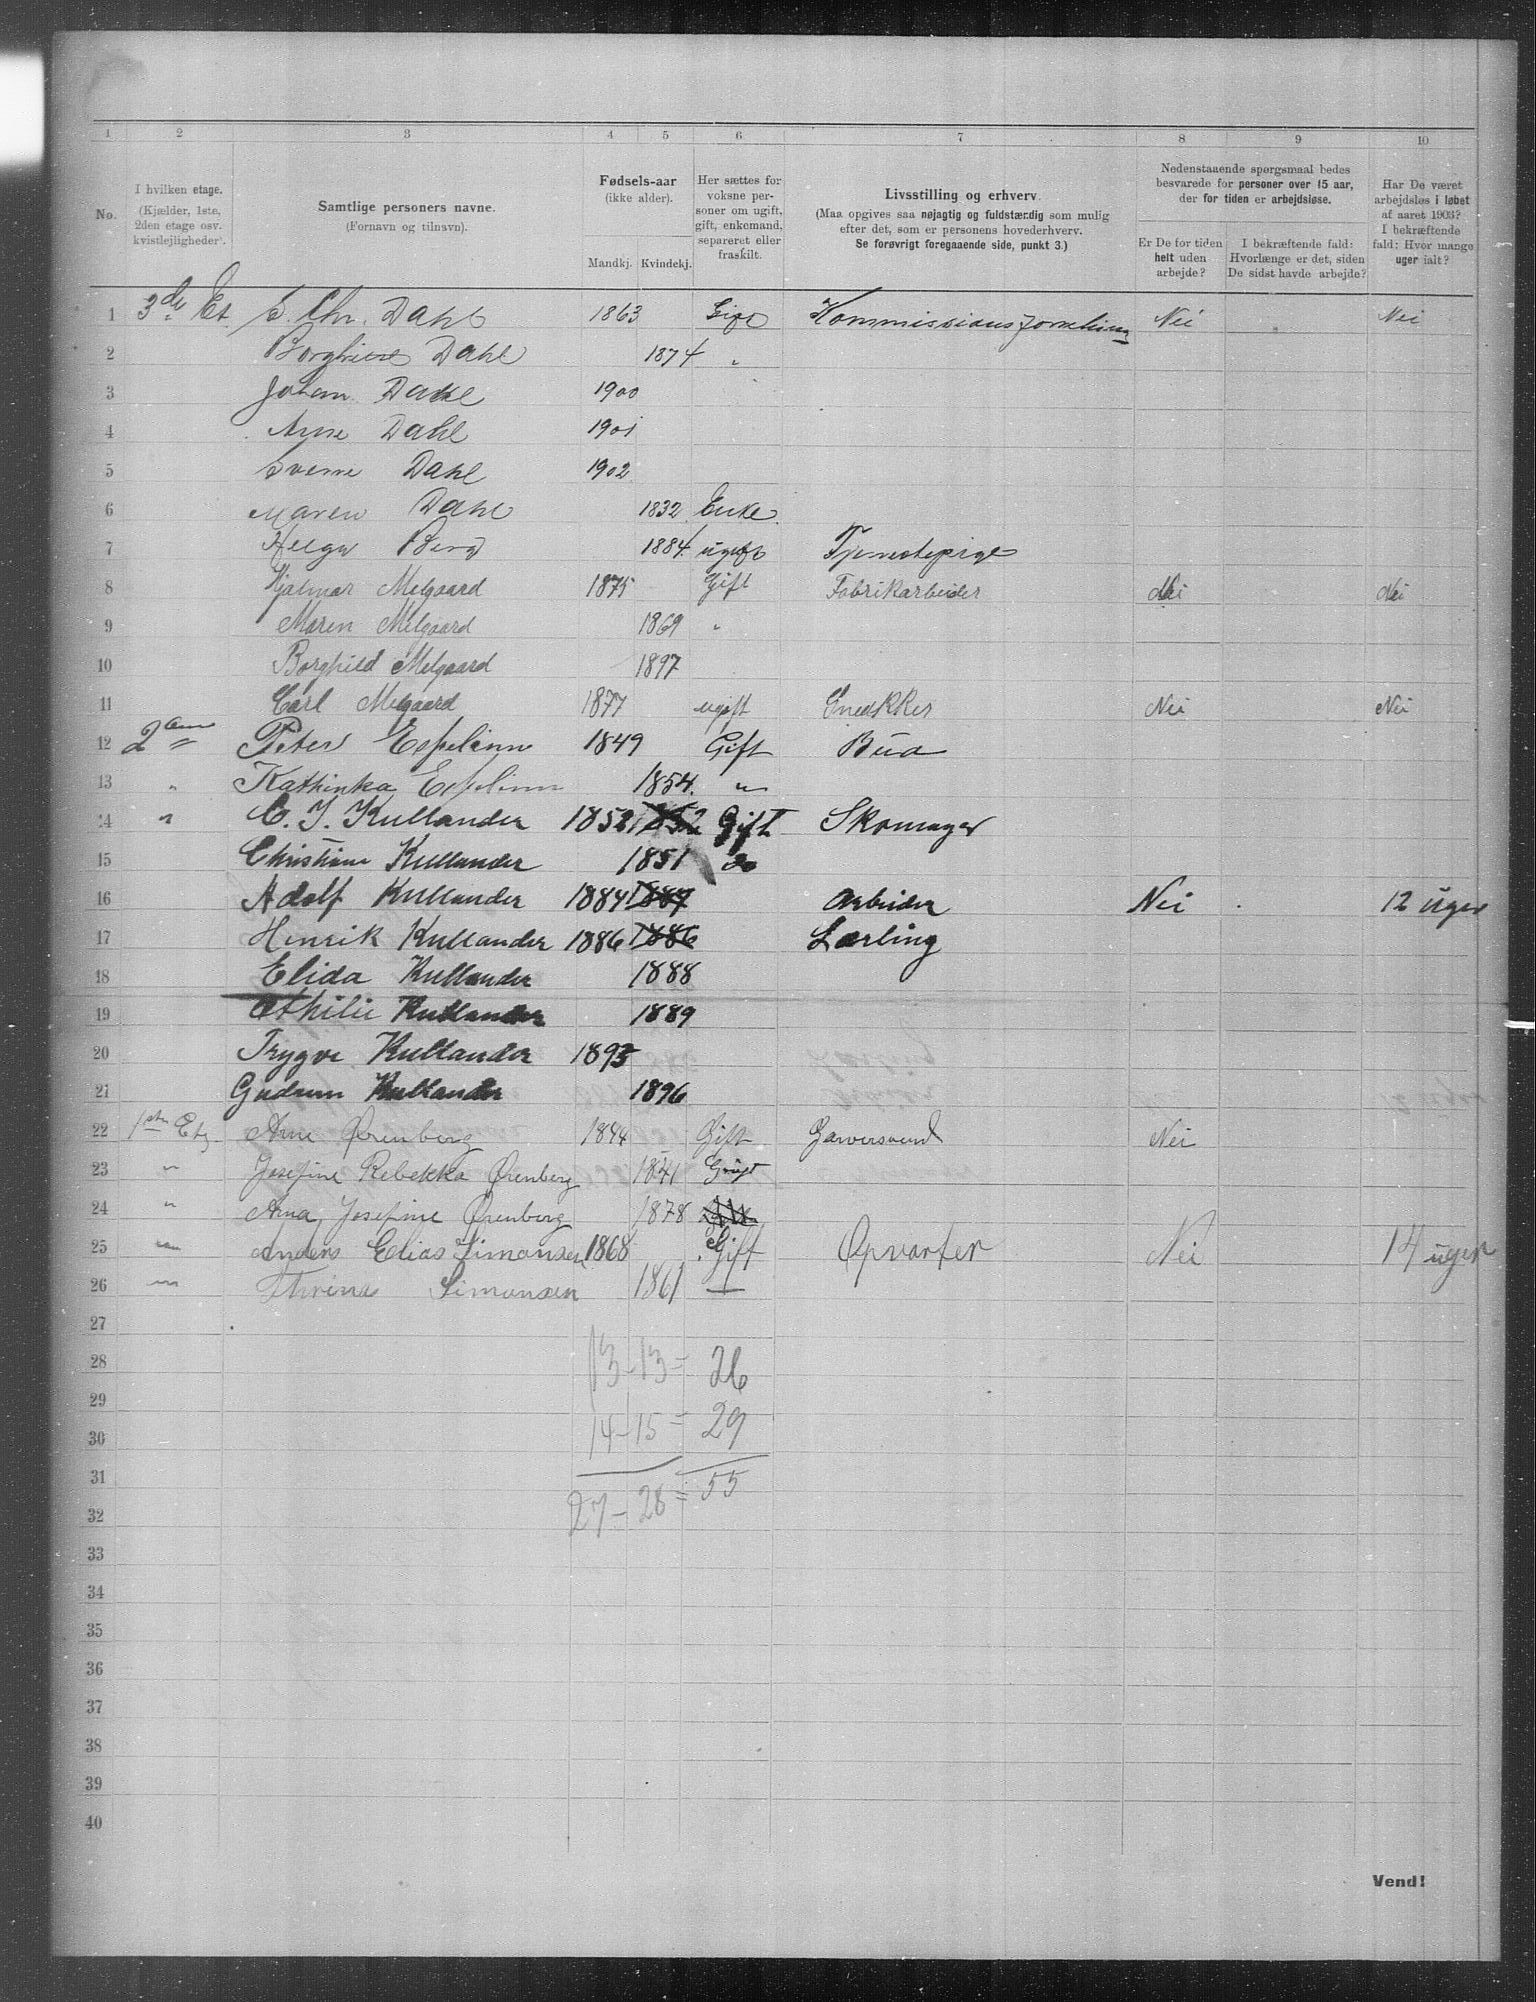 1 2 3 4 5 6 7 8 9 10
No.
I hvilken etage.
(Kjælder, 1ste,
2den etage osv.
kvistlejligheder).
Samtlige personers navne.
(Fornavn og tilnavn).
Fødsels-aar
(ikke alder).
Mandkj. Kvindekj.
Her sættes for
voksne per-
soner om ugift,
gift, enkemand,
separeret eller
fraskilt.
Livsstilling og erhverv.
(Maa opgives saa nøjagtig og fuldstændig som mulig
efter det, som er personens hovederhverv.
Se forøvrigt foregaaende side, punkt 3.)
Nedenstaaende spørgsmaal bedes
besvarede for personer over 15 aar,
der for tiden er arbejdsløse.
Er De for tiden
helt uden
arbejde?
I bekræftende fald:
Hvorlænge er det, siden
De sidst havde arbejde?
Har De været
arbejdsløs i løbet
af aaret 1903?
I bekræftende
fald: Hvor mange
uger ialt?
1 3de Et. Chr. Dahl 1863 Gift Nei Nei
2 Dahl 1874 "
3 Johan Dahl 1900
4 Arne Dahl 1901
5 Sverre Dahl 1902
6 Maren Dahl 1832 Enke
7 Helga Berg 1884 ugift Tjenestepige
8 Hjalmar Melgaard 1875 Gift Fabrikarbeider Nei Nei
9 Maren Melgaard 1869 "
10 Borghild Melgaard 1897
11 Carl Melgaard 1877 ugift Snedkker Nei Nei
12 2 " Peter Espelinn 1849 Gift
13 " Kathinka Espelinn 1854 "
14 " C. J. Kullander 1852 1852 Gift Skomager
15 Christiane Kullander 1851 do
16 Adolf Kullander 1884 1884 Arbeider Nei 12 uger
17 Henrik Kullander 1886 1886 Lærling
18 Elida Kullander 1888
19 Othilie Kullander 1889
20 Trygve Kullander 1893
21 Gudrun Kullander 1896
22 1ste Etg. Arne Ørenberg 1844 Gift Garversvend Nei
23 " Josefine Rebekka Ørenberg 1841 Gift
24 " Anna Josefine Ørenberg 1878
25 " Anders Elias Simonsen 1868 Gift Opvarter Nei 14 uger
26 " Thrine Simonsen 1861 "
27
28 13-13= 26
29
30 14-15= 29
31
32 27-28= 55
33
34
35
36
37
38
39
40
Vend!